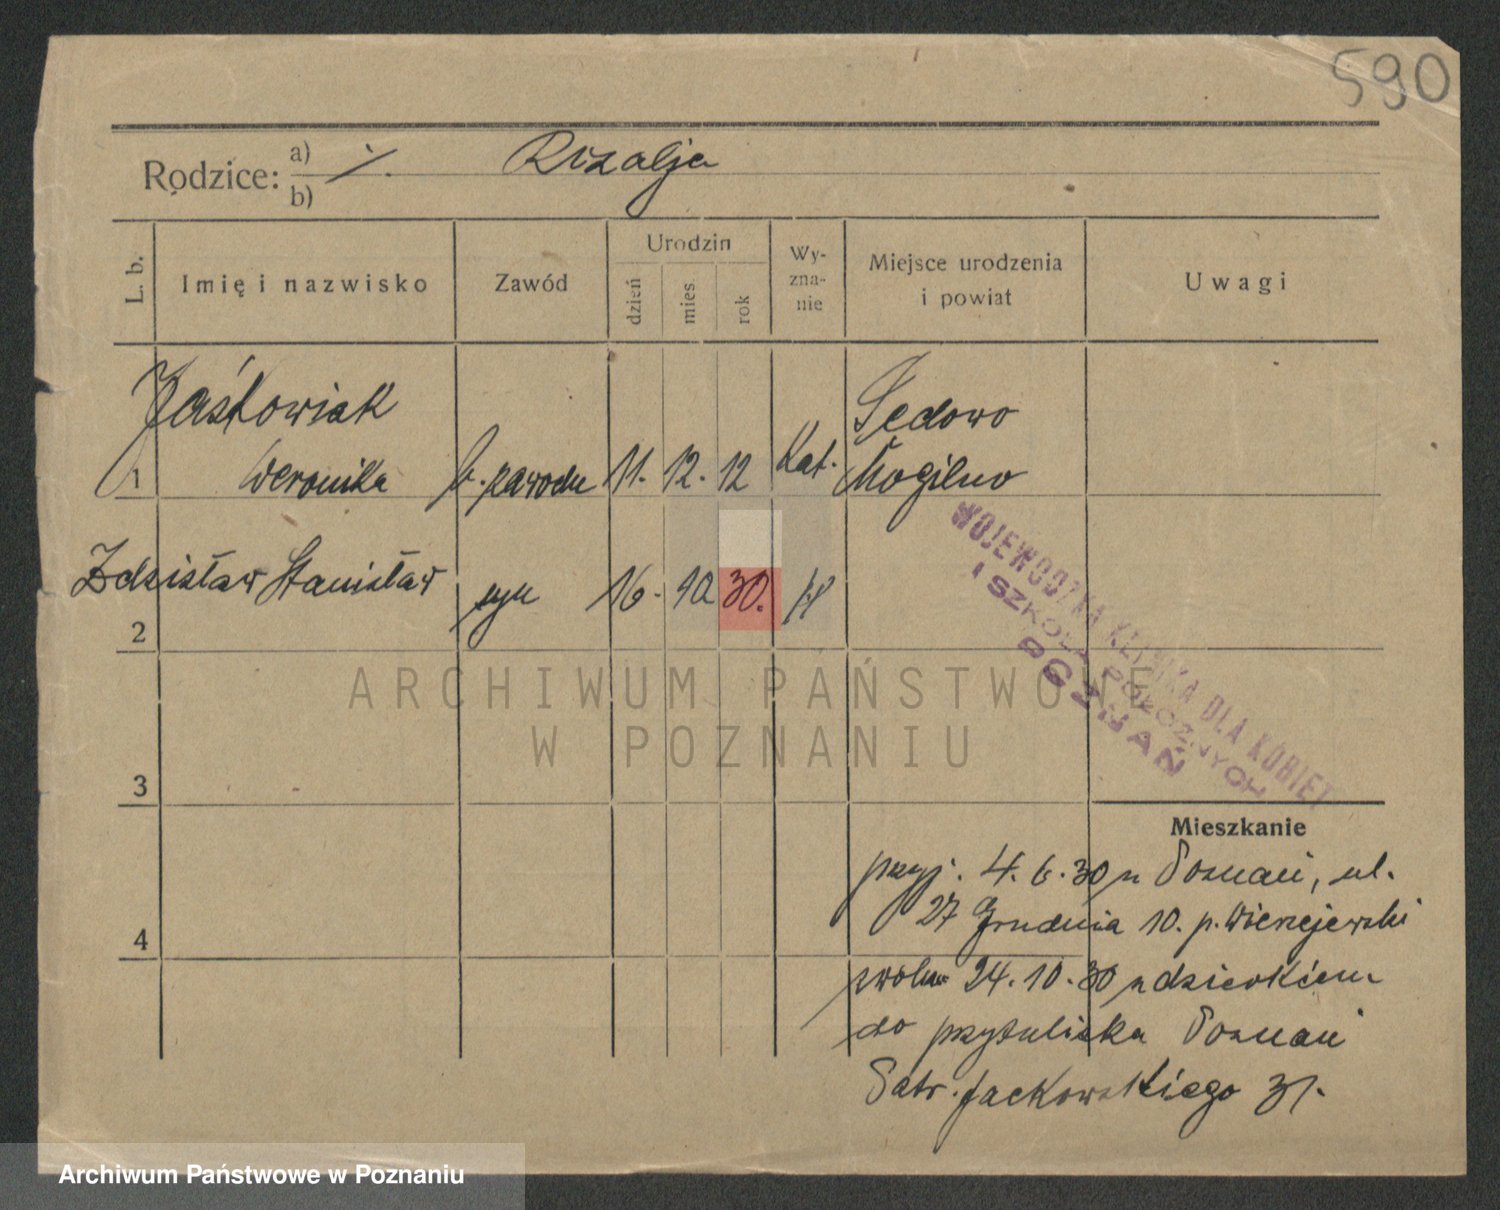 590
Rodzice: a) ·/.
b)
Rozalja
L. b.
Imię i nazwisko
Zawód
Urodzin
dzień
mies.
rok
Wy-
zna-
nie
Miejsce urodzenia
i powiat
Uwagi
Jaśkowiak
1 Weronika b. zawodu 11. 12. 12 Kat.
Sędowo
Mogilno
Zdzisław Stanisław syn 16. 10 30.
2
WOJEWÓDZKA KLINIKA DLA KOBIET
I SZKOŁA POŁOŻNYCH
POZNAŃ
ARCHIWUM PAŃSTWOWE
W POZNANIU
3
Mieszkanie
4
przyj. 4. 6. 30 z Poznań, ul.
27 Grudnia 10. p. Wierzejewski
zwoln 24. 10. 30 z dzieckiem
do przytuliska Poznań
Patr. Jackowskiego 31.
Archiwum Państwowe w Poznaniu